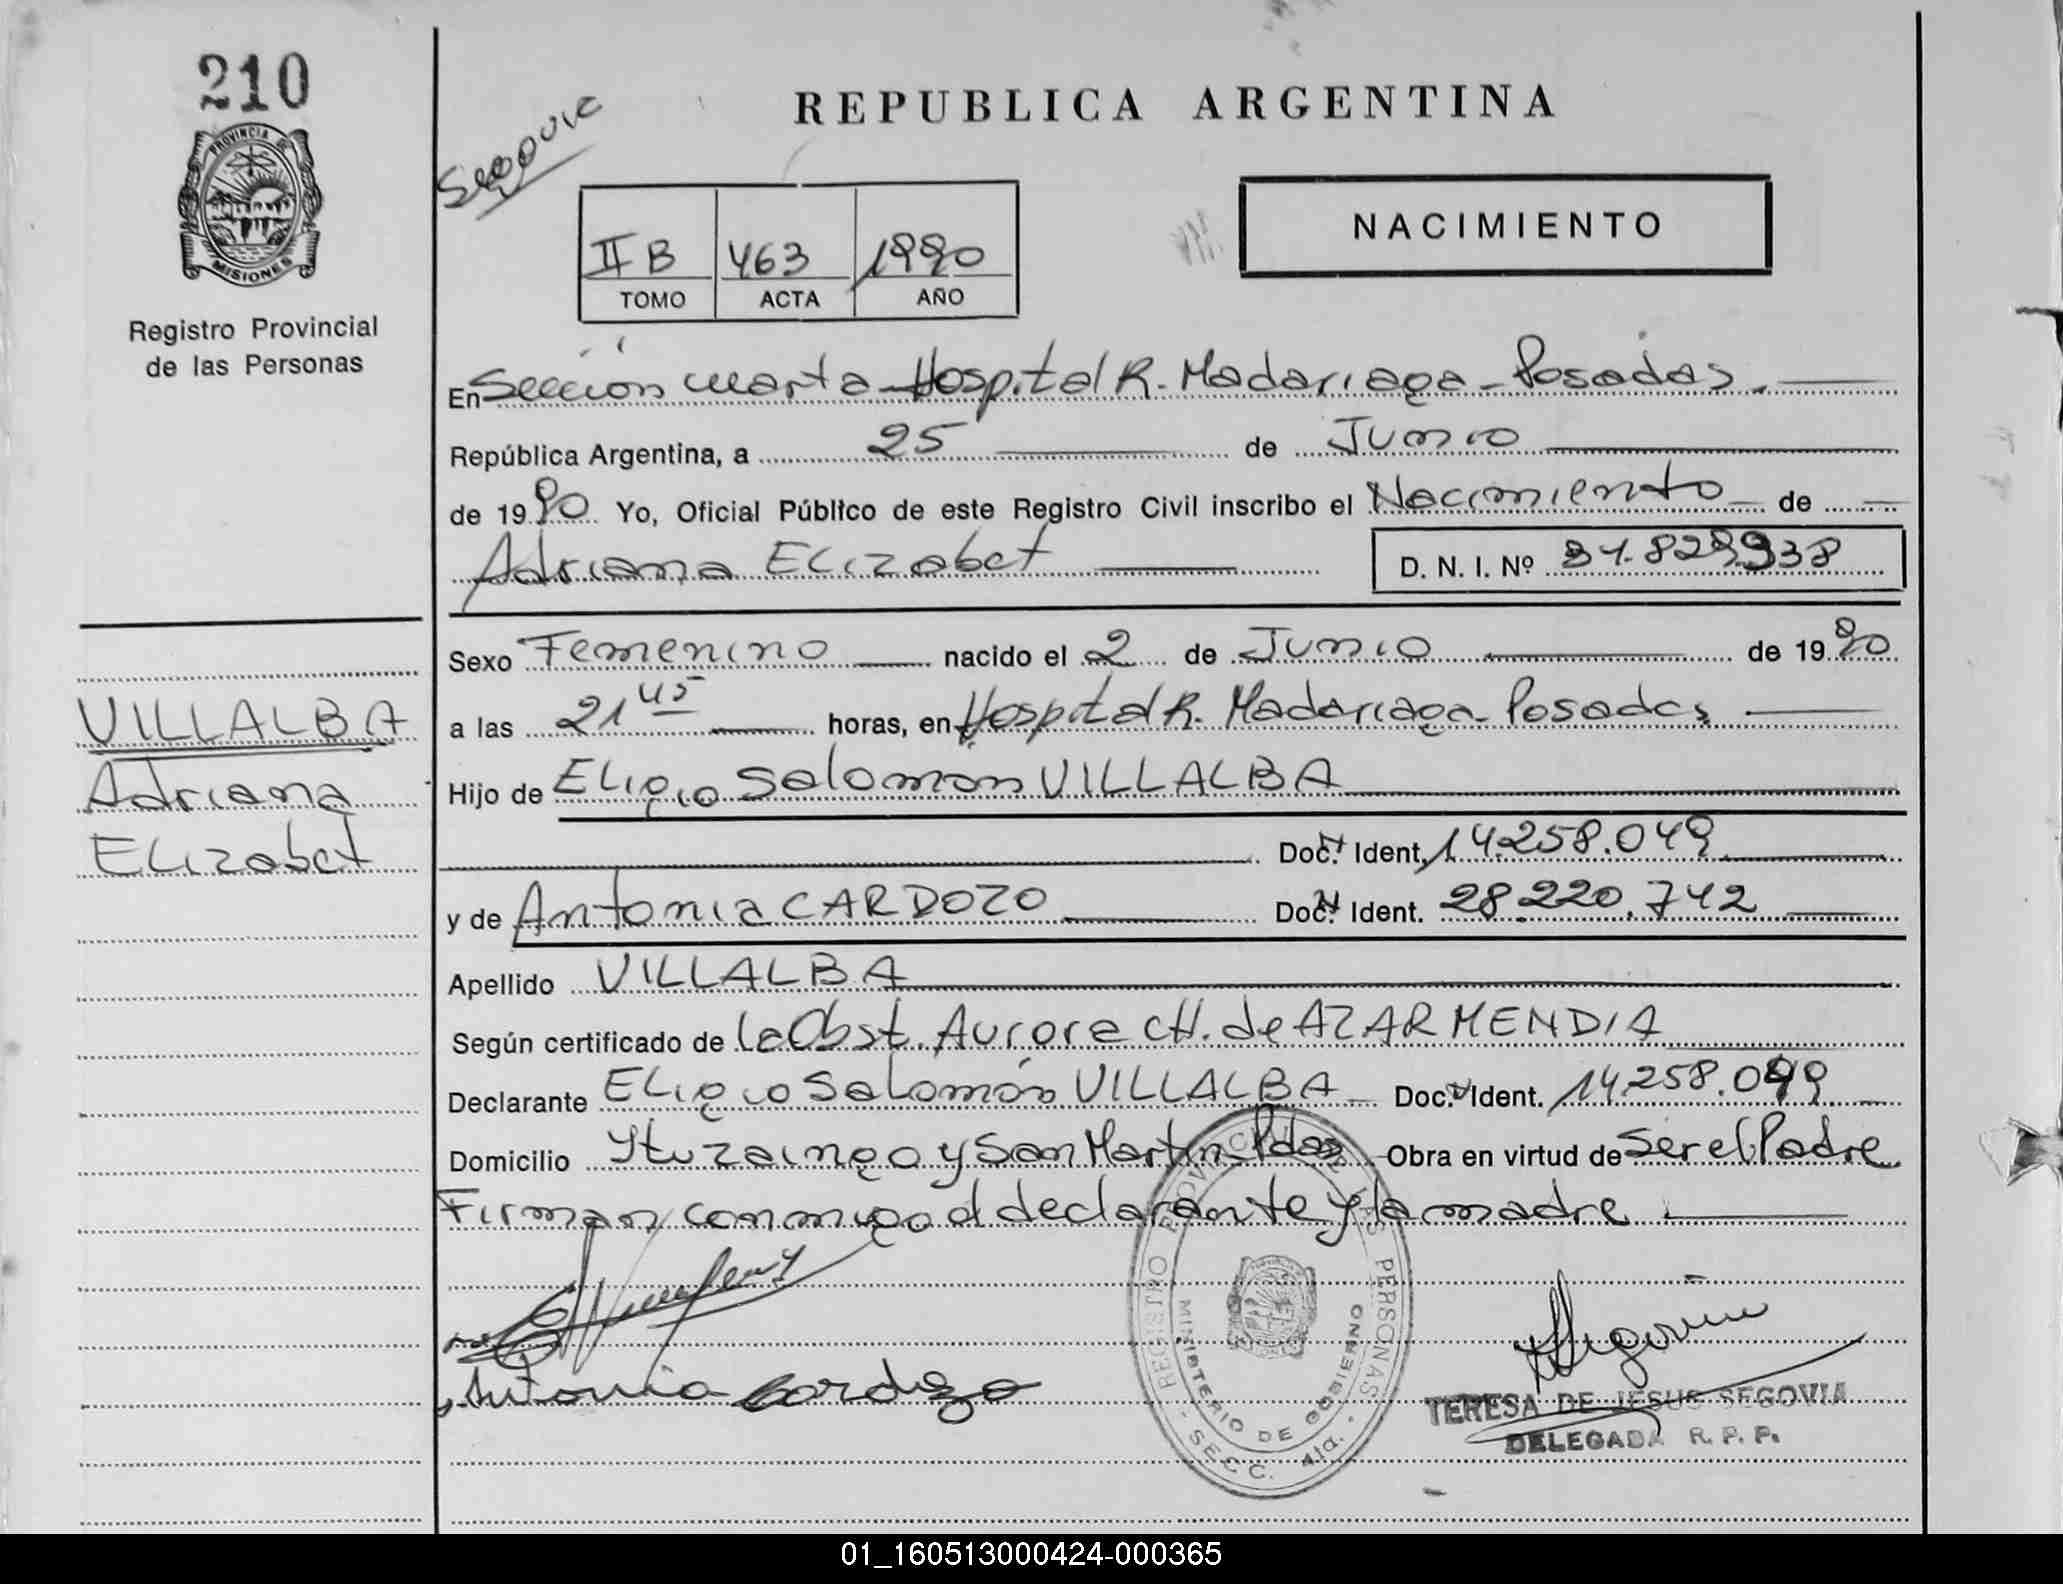 210
PROVINCIA DE
MISIONES
Registro Provincial
de las Personas
VILLALBA
Adriana
Elizabet
Segovia
REPUBLICA ARGENTINA
II B 463 1990
TOMO ACTA AÑO
NACIMIENTO
En Sección cuarta Hospital R. Madariaga - Posadas.
República Argentina, a 25 de Junio
de 1990 Yo, Oficial Público de este Registro Civil inscribo el Nacimiento de
Adriana Elizabet D. N. I. Nº
Sexo Femenino nacido el 2 de Junio de 1990
a las 21 45 horas, en Hospital R. Madariaga - Posadas
Hijo de Eligio Salomon VILLALBA
Doc. Ident. 14.258.049
y de Antonia CARDOZO Doc. Ident. 28.220.742
Apellido VILLALBA
Según certificado de la Obst. Aurora CH. de AZARMENDIA
Declarante Eligio Salomón VILLALBA Doc. Ident. 14.258.049
Domicilio Ytuzaingo y San Martin Pdas Obra en virtud de Ser el Padre
Firman conmigo el declarante y la madre
Antonia Cardozo
REGISTRO PROVINCIAL DE LAS PERSONAS
MINISTERIO DE GOBIERNO
- SECC. 4ta. -
Segovia
TERESA DE JESUS SEGOVIA
DELEGADA R. P. P.
01_160513000424-000365